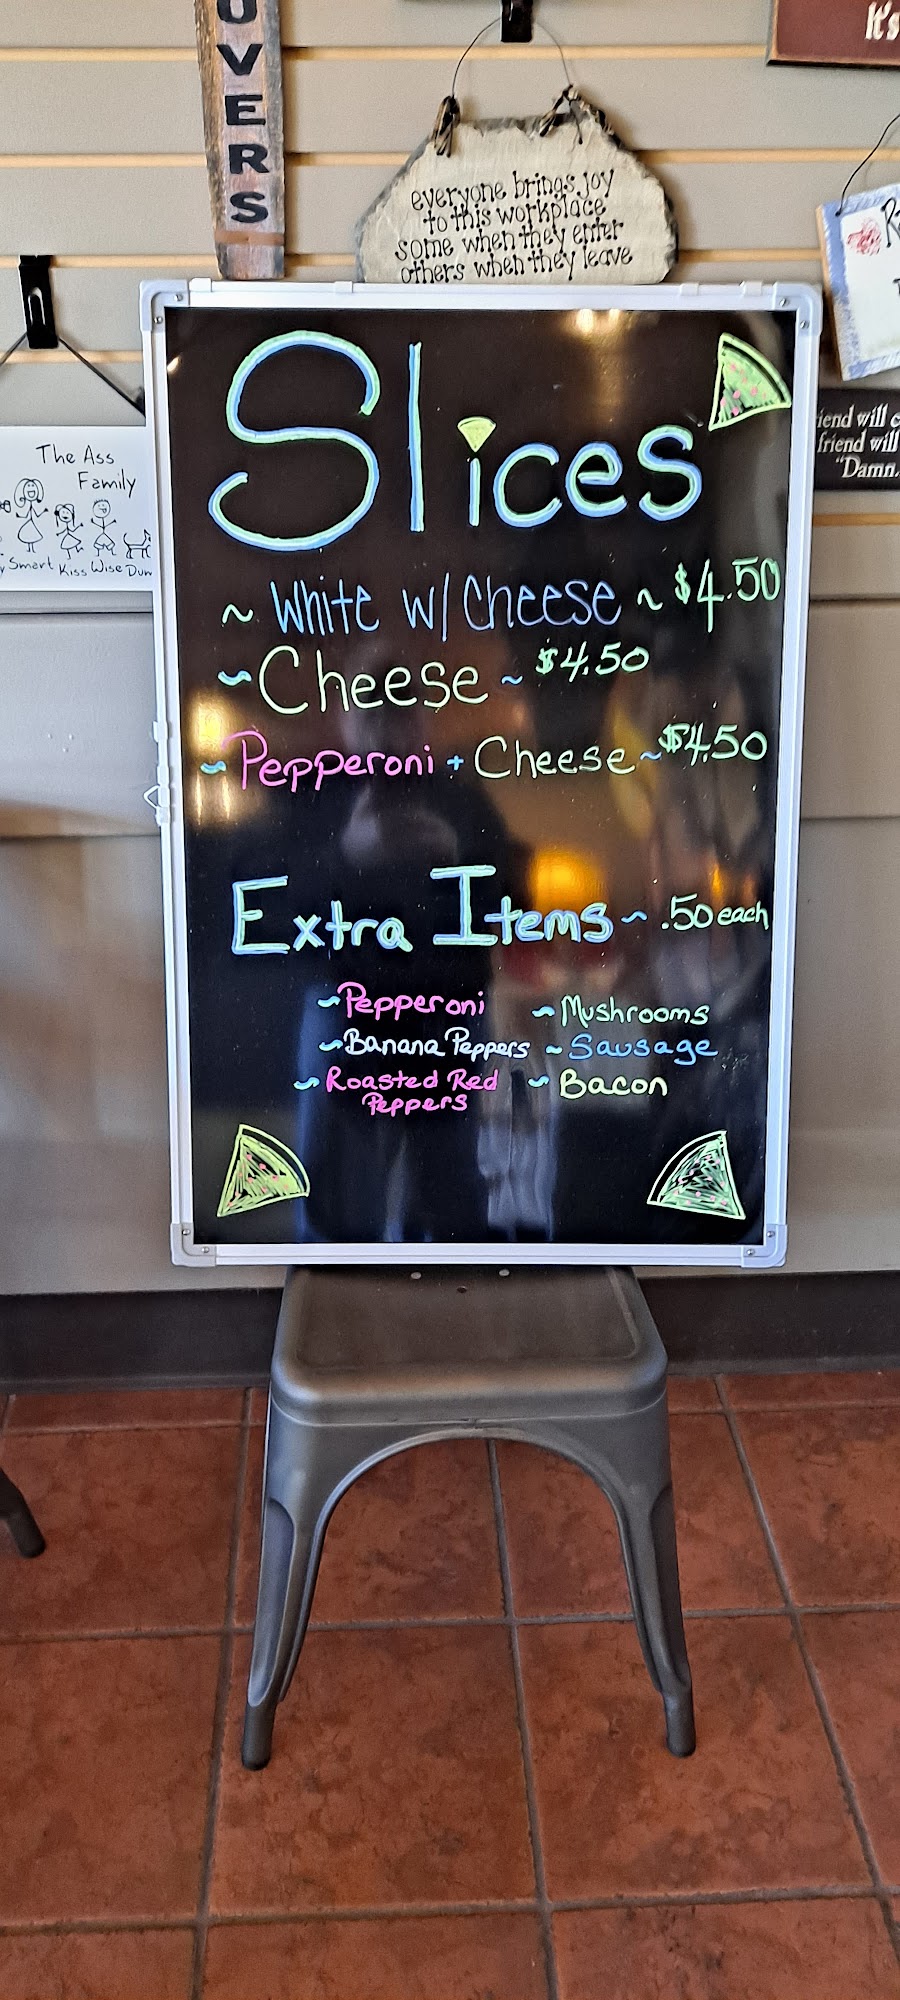 OVERS
It's
everyone brings joy
to this workplace
some when they enter
others when they leave
The Ass
Family
Smart Kiss Wise Dum
iend will
friend will
"Damn.
Slices
~ White w/ Cheese ~ $4.50
~ Cheese ~ $4.50
~ Pepperoni + Cheese ~ $4.50
Extra Items ~ .50 each
~ Pepperoni ~ Mushrooms
~ Banana Peppers ~ Sausage
~ Roasted Red ~ Bacon
Peppers